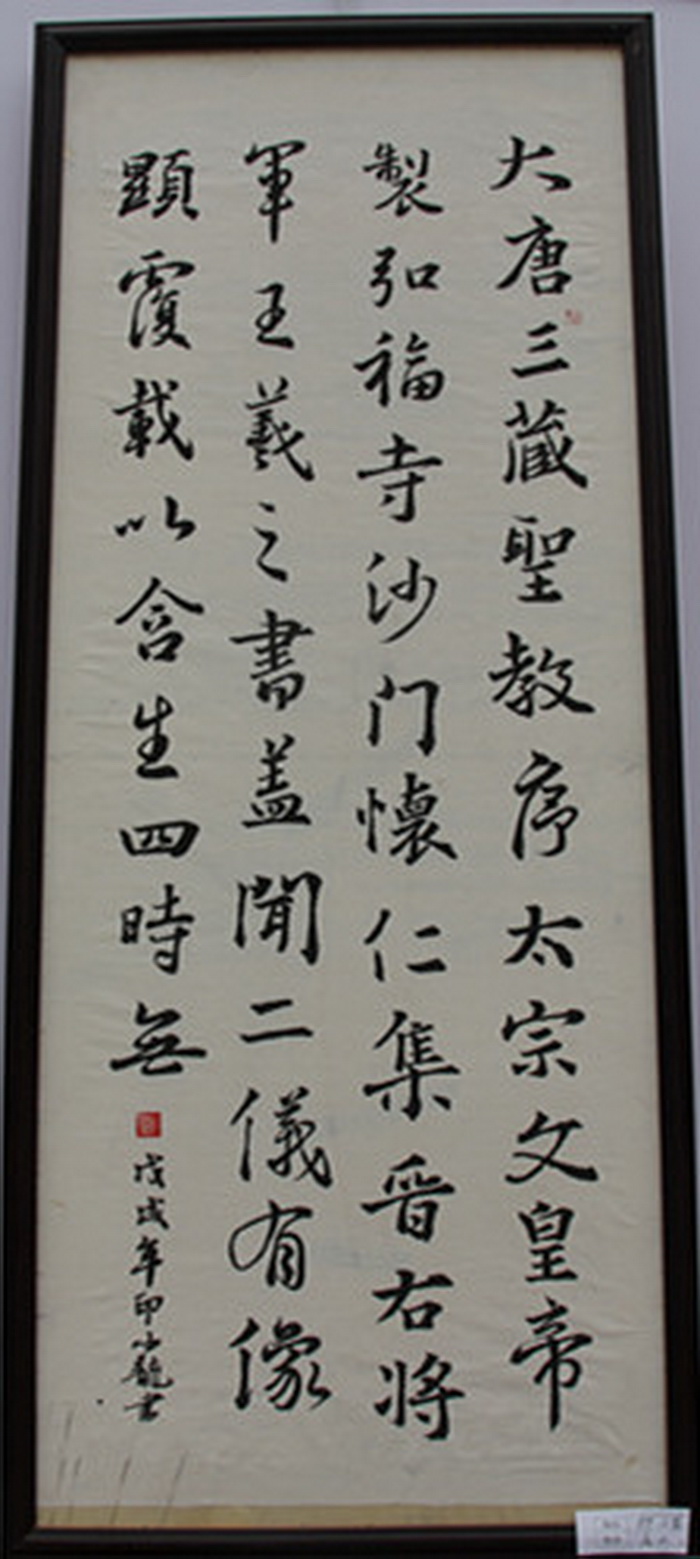 大唐三蔵聖教序太宗文皇帝
製弘福寺沙门懷仁集晉右将
軍王羲之書盖聞二儀有像
顯覆載以含生四時無
戊戌年印小龍书